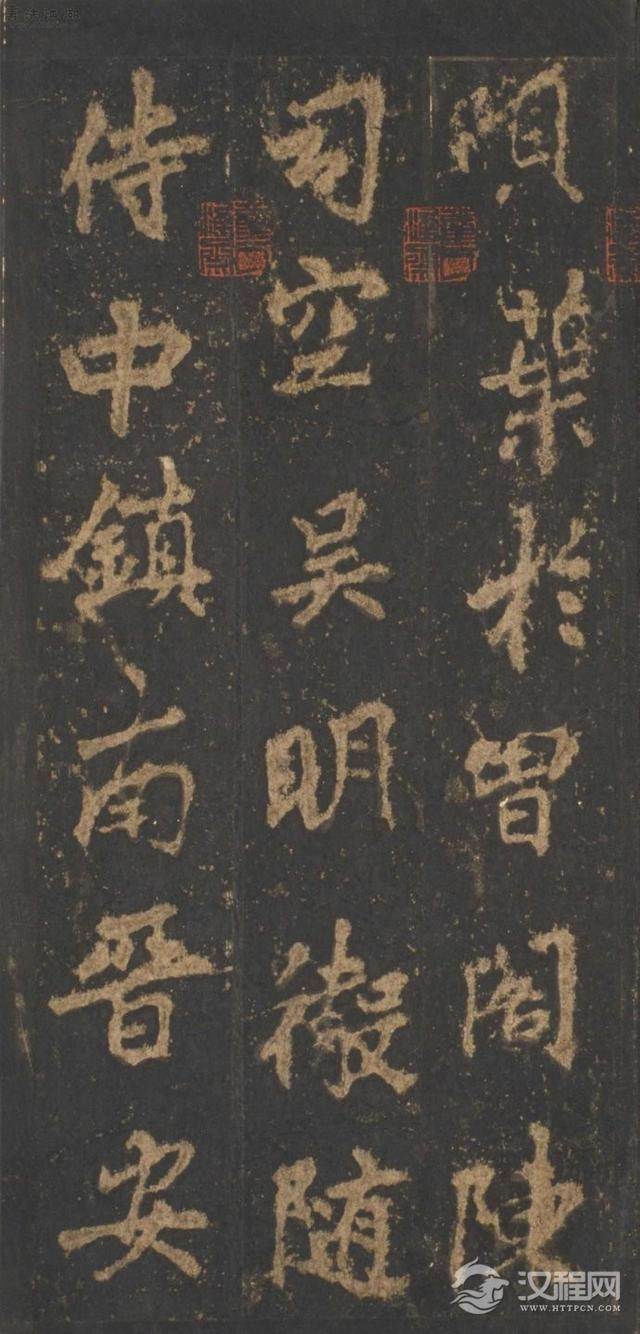 隕葉於曾閣陳
司空吴明徹隨
侍中鎮南晉安
汉程网
WWW.HTTPCN.COM